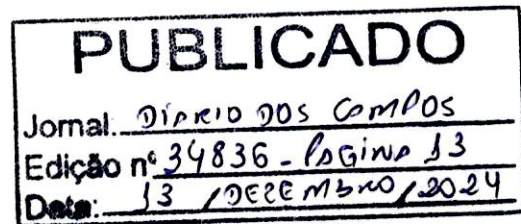 PUBLICADO
Jornal: DIÁRIO DOS CAMPOS
Edição nº 34836 - PAGINA 13
Data: 13 / DEZEMBRO / 2024